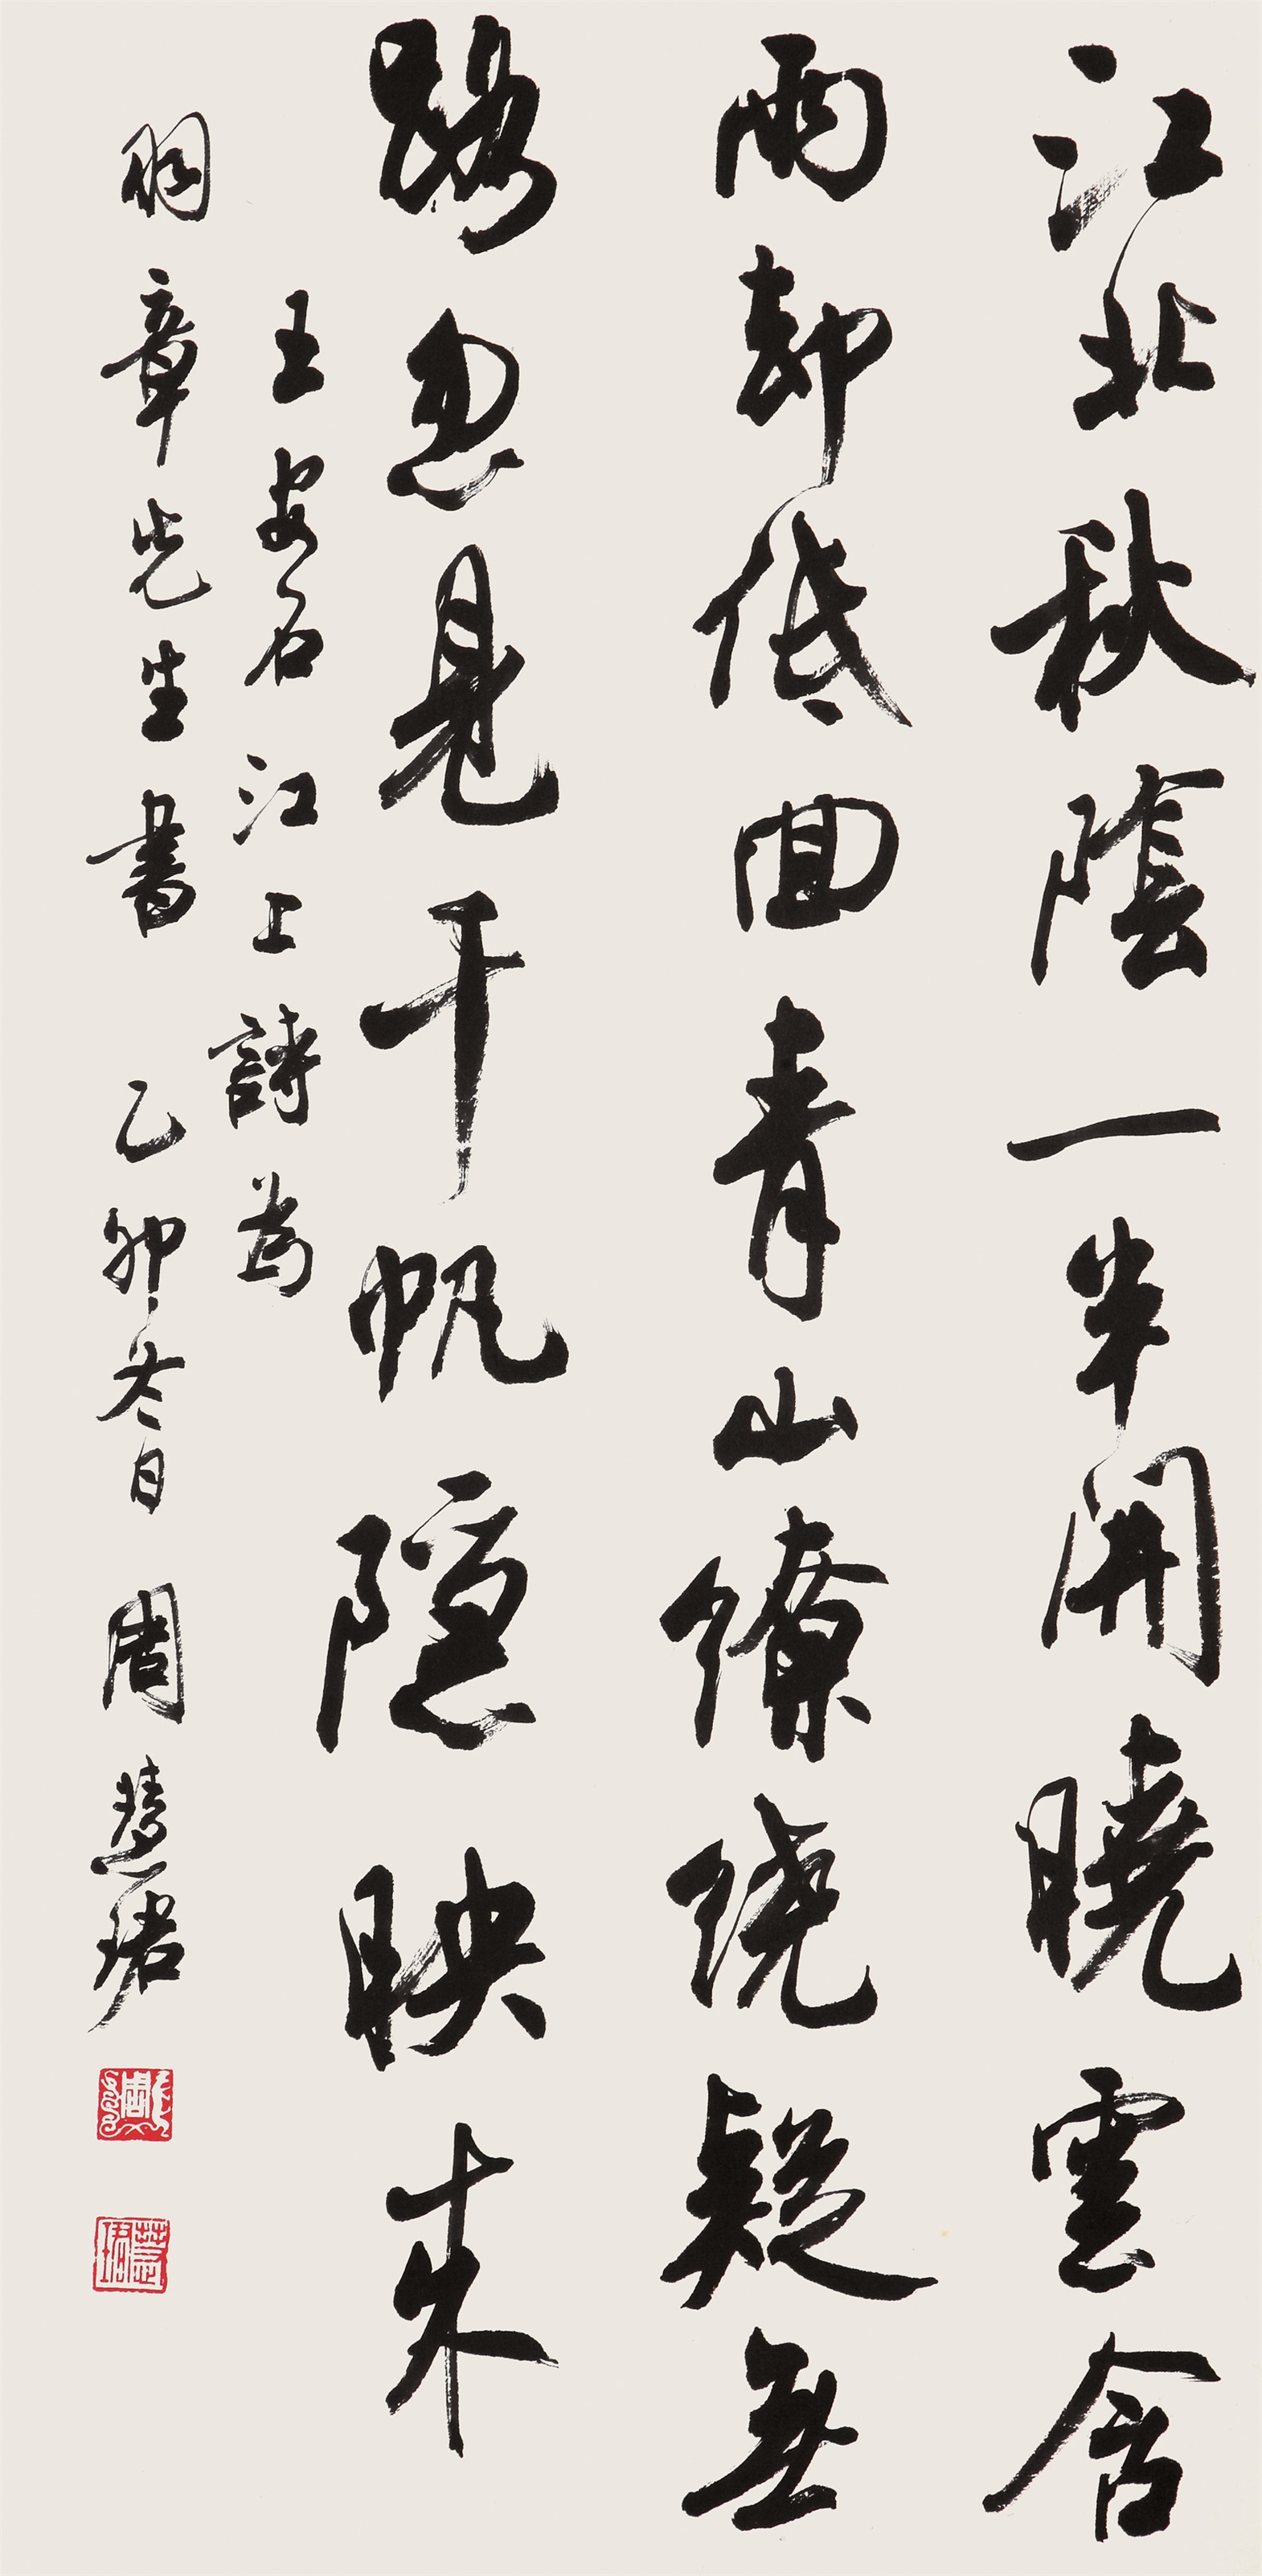 江北秋陰一半開曉雲含
雨却低回青山繚繞疑無
路忽見千帆隱映來
王安石江上詩為
羽章先生書 乙卯冬日 周慧珺
周慧珺
慧珺